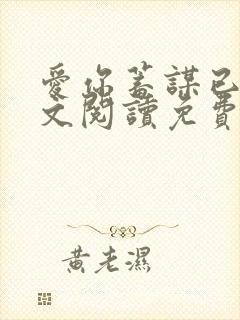 愛你蓄謀已
文閱讀免費
黃老濕